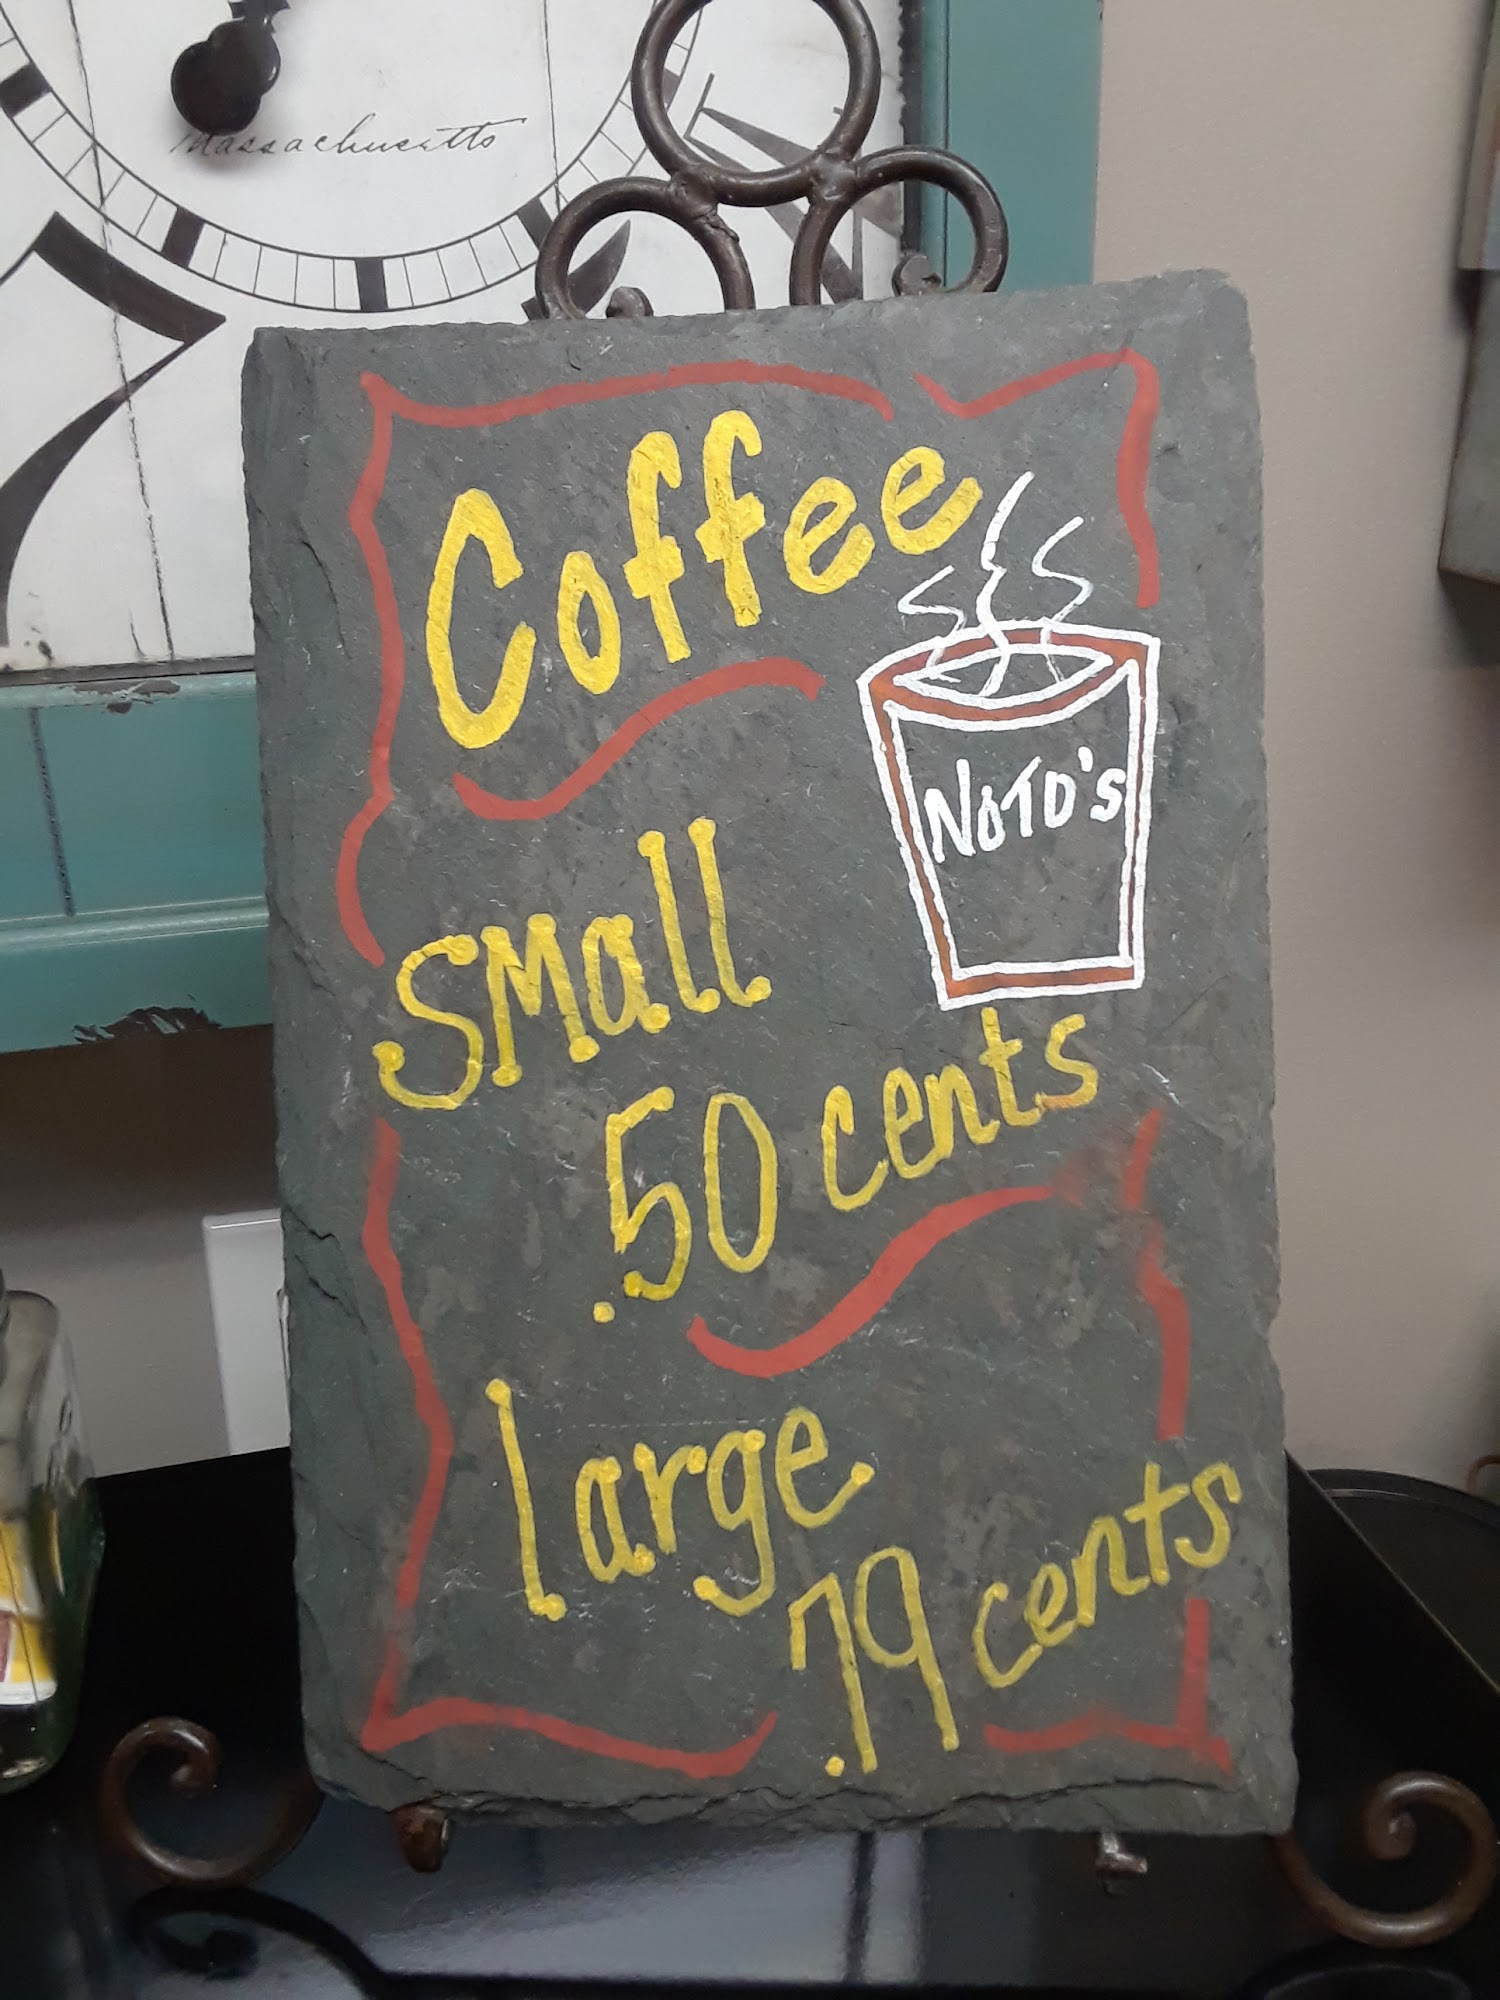 Massachusetts
Coffee
NOTO'S
small
.50 cents
large
.79 cents